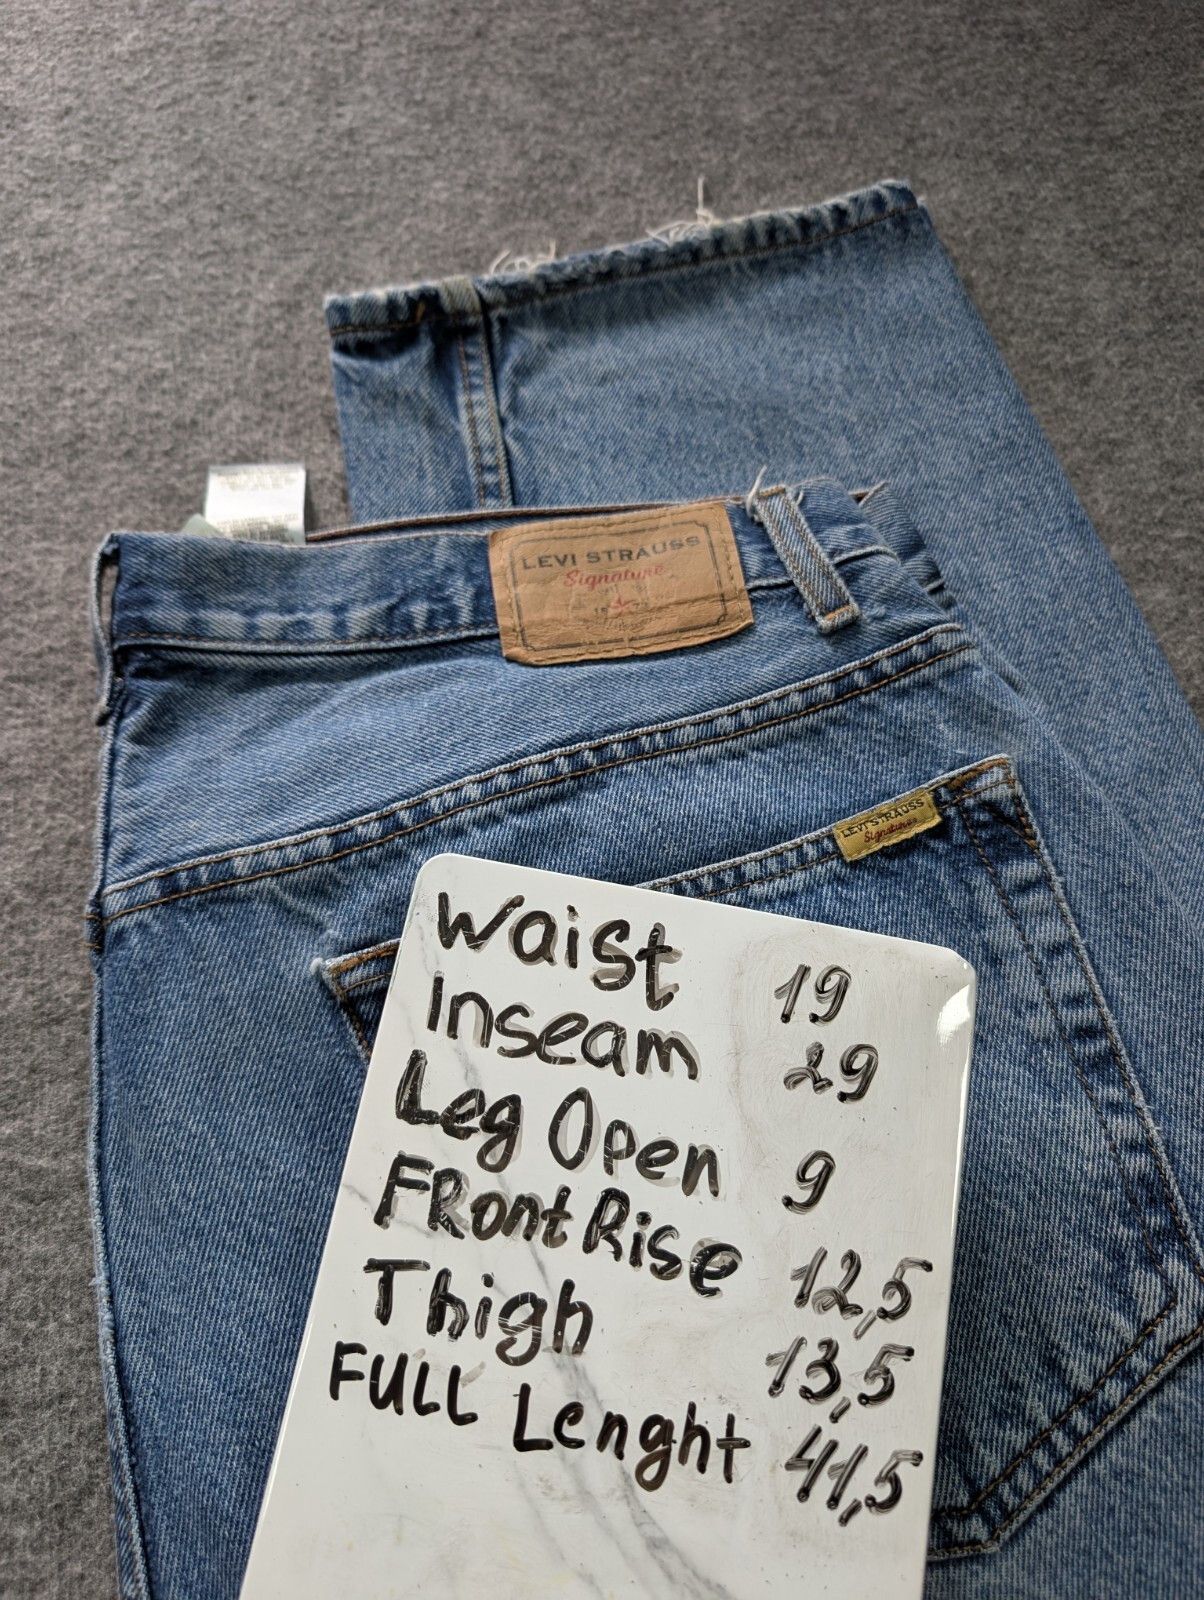 LEVI STRAUSS
Signature
LEVI STRAUSS
Signature
Waist 19
Inseam 29
Leg Open 9
FRont Rise 12,5
Thigh 13,5
FULL Lenght 41,5